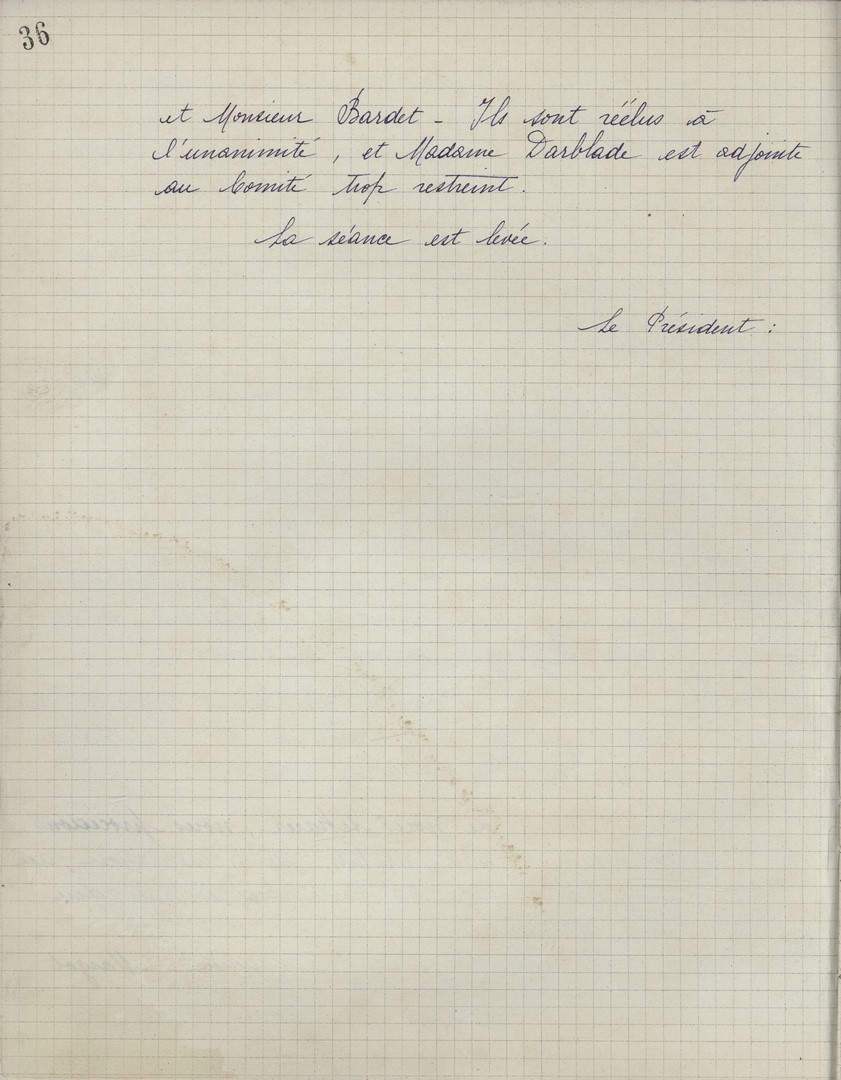 36
et Monsieur Bardet - Ils sont réélus à
l'unanimité, et Madame Darblade est adjointe
au Comité trop restreint.
La séance est levée.
Le Président :